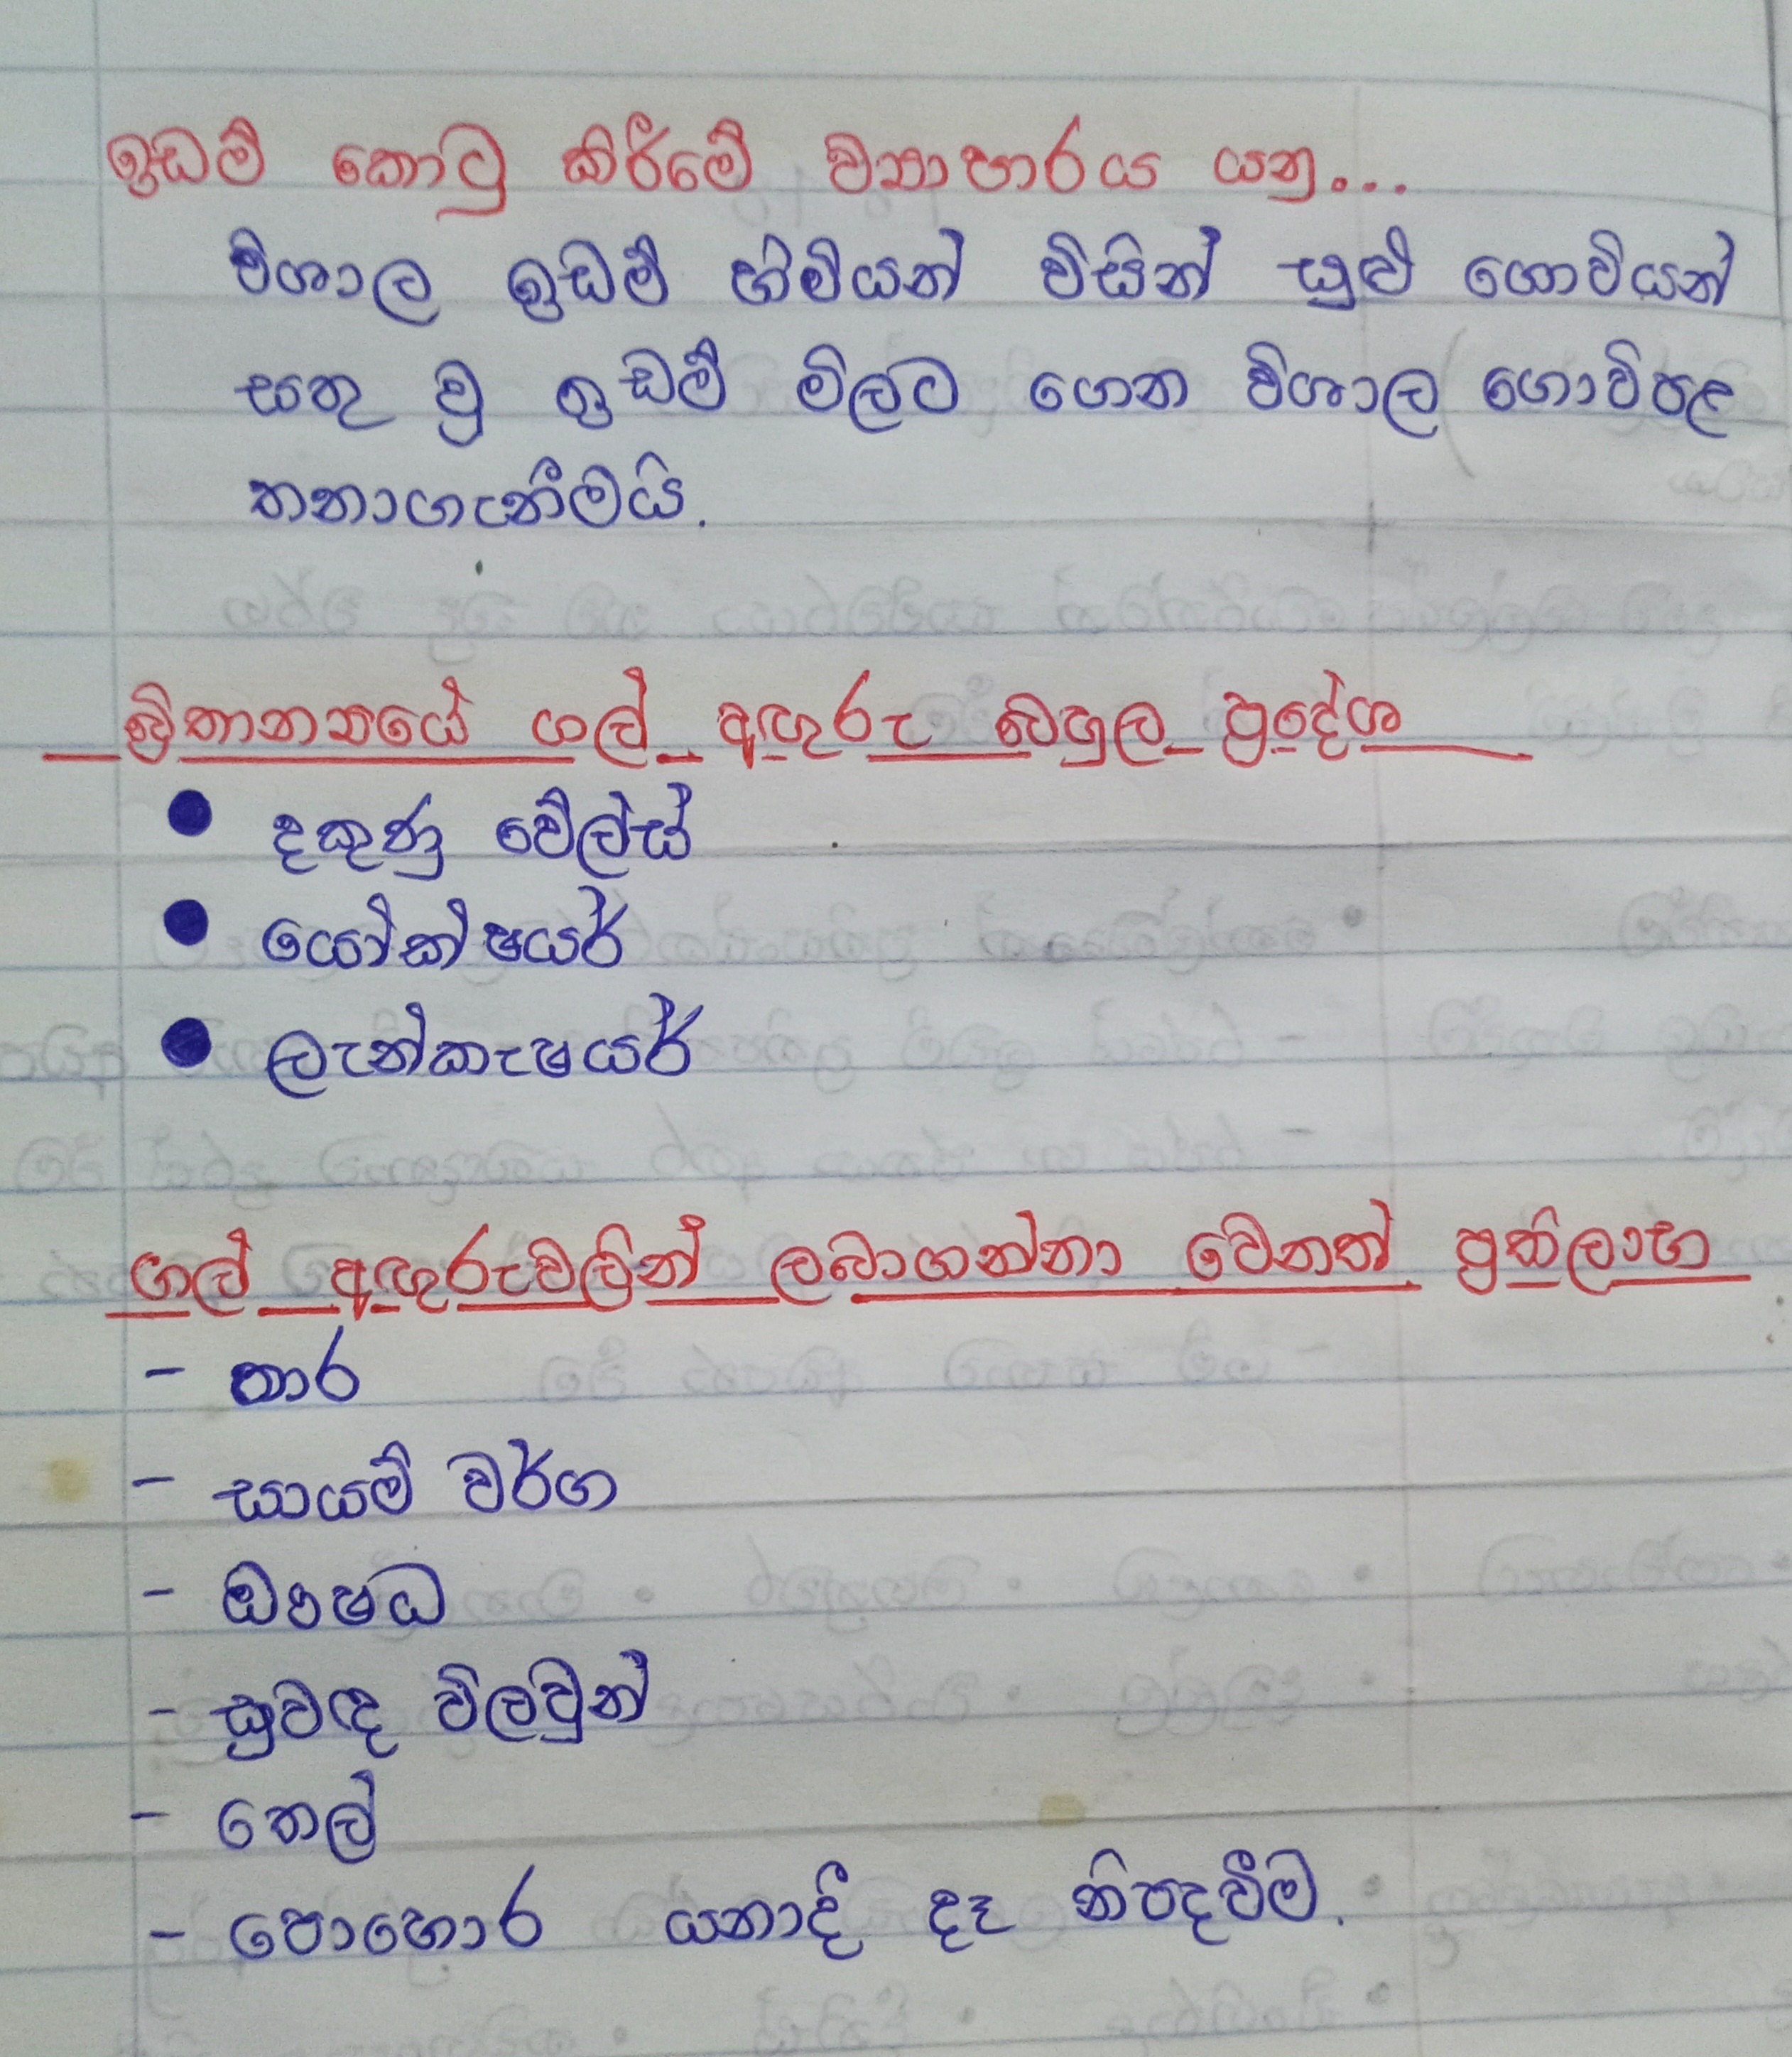 ඉඩම් කොටු කිරීමේ ව්‍යාපාරය යනු...
විශාල ඉඩම් හිමියන් විසින් සුළු ගොවියන්
සතු වූ ඉඩම් මිලට ගෙන විශාල ගොවිපළ
තනාගැනීමයි.
බ්‍රිතාන්‍යයේ ගල් අඟුරු බහුල ප්‍රදේශ
● දකුණු වේල්ස්
● යෝක්ෂයර්
● ලැන්කැෂයර්
ගල් අඟුරුවලින් ලබාගන්නා වෙනත් ප්‍රතිලාභ
- තාර
- සායම් වර්ග
- ඖෂධ
- සුවඳ විලවුන්
- තෙල්
- පොහොර යනාදී දෑ නිපදවීම.